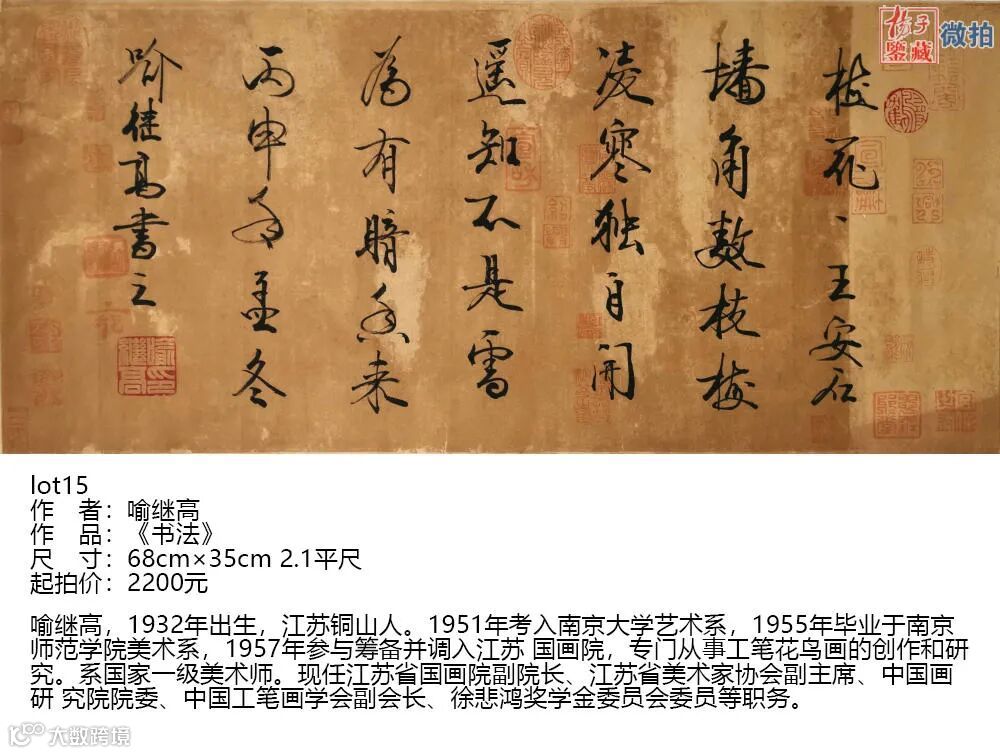 扬子
鑒藏
微拍
梅花、王安石
墙角数枝梅
凌寒独自開
遥知不是雪
為有暗香来
丙申年孟冬
喻継高書之
lot15
作 者：喻继高
作 品：《书法》
尺 寸：68cm×35cm 2.1平尺
起拍价：2200元
喻继高，1932年出生，江苏铜山人。1951年考入南京大学艺术系，1955年毕业于南京
师范学院美术系，1957年参与筹备并调入江苏 国画院，专门从事工笔花鸟画的创作和研
究。系国家一级美术师。现任江苏省国画院副院长、江苏省美术家协会副主席、中国画
研 究院院委、中国工笔画学会副会长、徐悲鸿奖学金委员会委员等职务。
大数跨境